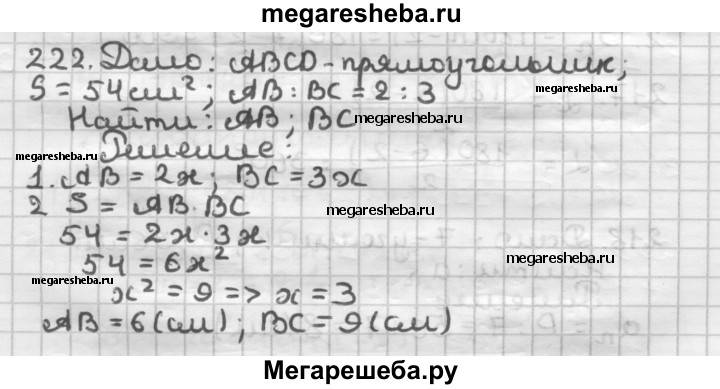 megaresheba.ru
222. Дано: ABCD - прямоугольник;
S = 54 см²; AB : BC = 2 : 3
Найти: AB; BC megaresheba.ru
megaresheba.ru
megaresheba.ru Решение:
1. AB = 2x; BC = 3x
2 S = AB · BC megaresheba.ru
54 = 2x · 3x
54 = 6x² megaresheba.ru
megaresheba.ru
x² = 9 => x = 3
AB = 6 (см); BC = 9 (см)
Мегарешеба.ру